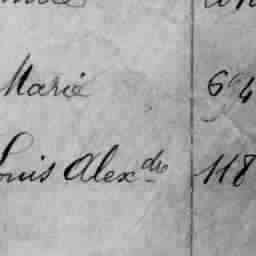 Marie 694
Louis Alexdre 118